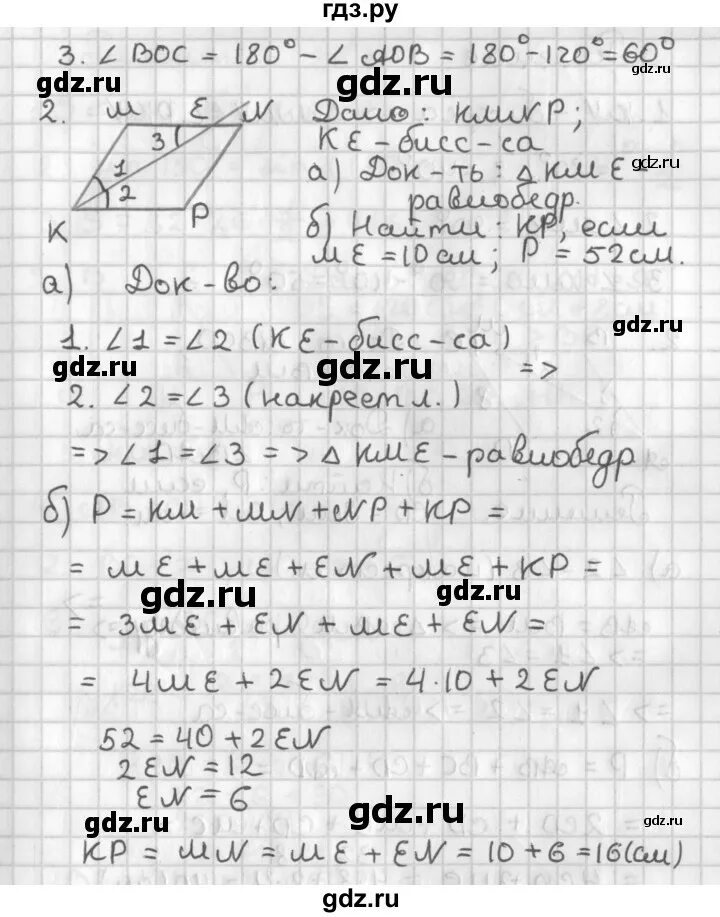 гдз.ру
3. ∠ BOC = 180° - ∠ AOB = 180° - 120° = 60°
gdz.ru gdz.ru
2. M E N Дано: KMNP;
gdz.ru
3 KE - бисс-са
1 а) Док-ть: △ KME -
2 равнобедр.
K P б) Найти: KP, если
ME = 10 см; P = 52 см.
gdz.ru
а) Док-во:
gdz.ru
1. ∠1 = ∠2 (KE - бисс-са)
gdz.ru gdz.ru =>
2. ∠2 = ∠3 (накрест л.)
=> ∠1 = ∠3 => △ KME - равнобедр
gdz.ru gdz.ru
б) P = KM + MN + NP + KP =
= ME + ME + EN + ME + KP =
gdz.ru gdz.ru
= 3ME + EN + ME + EN =
= 4ME + 2EN = 4·10 + 2EN
gdz.ru gdz.ru
52 = 40 + 2EN
2EN = 12
EN = 6
gdz.ru gdz.ru
KP = MN = ME + EN = 10 + 6 = 16(см)
gdz.ru